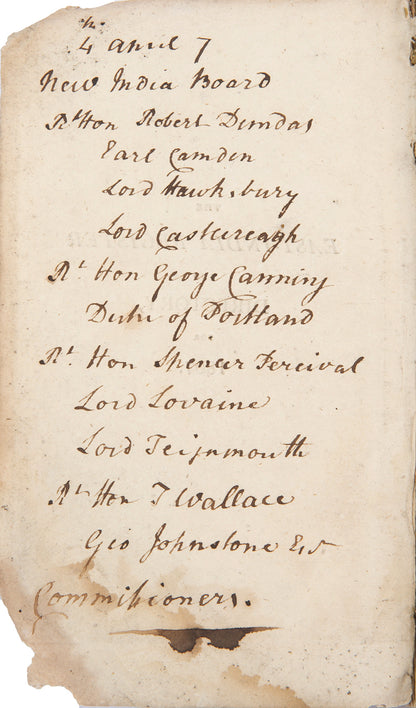 4th April 7
New India Board
Rt Hon Robert Dundas
Earl Camden
Lord Hawksbury
Lord Castlereagh
Rt Hon George Canning
Duke of Portland
Rt Hon Spencer Percival
Lord Lovaine
Lord Teignmouth
Rt Hon T Wallace
Geo Johnstone Esr
Commissioners.